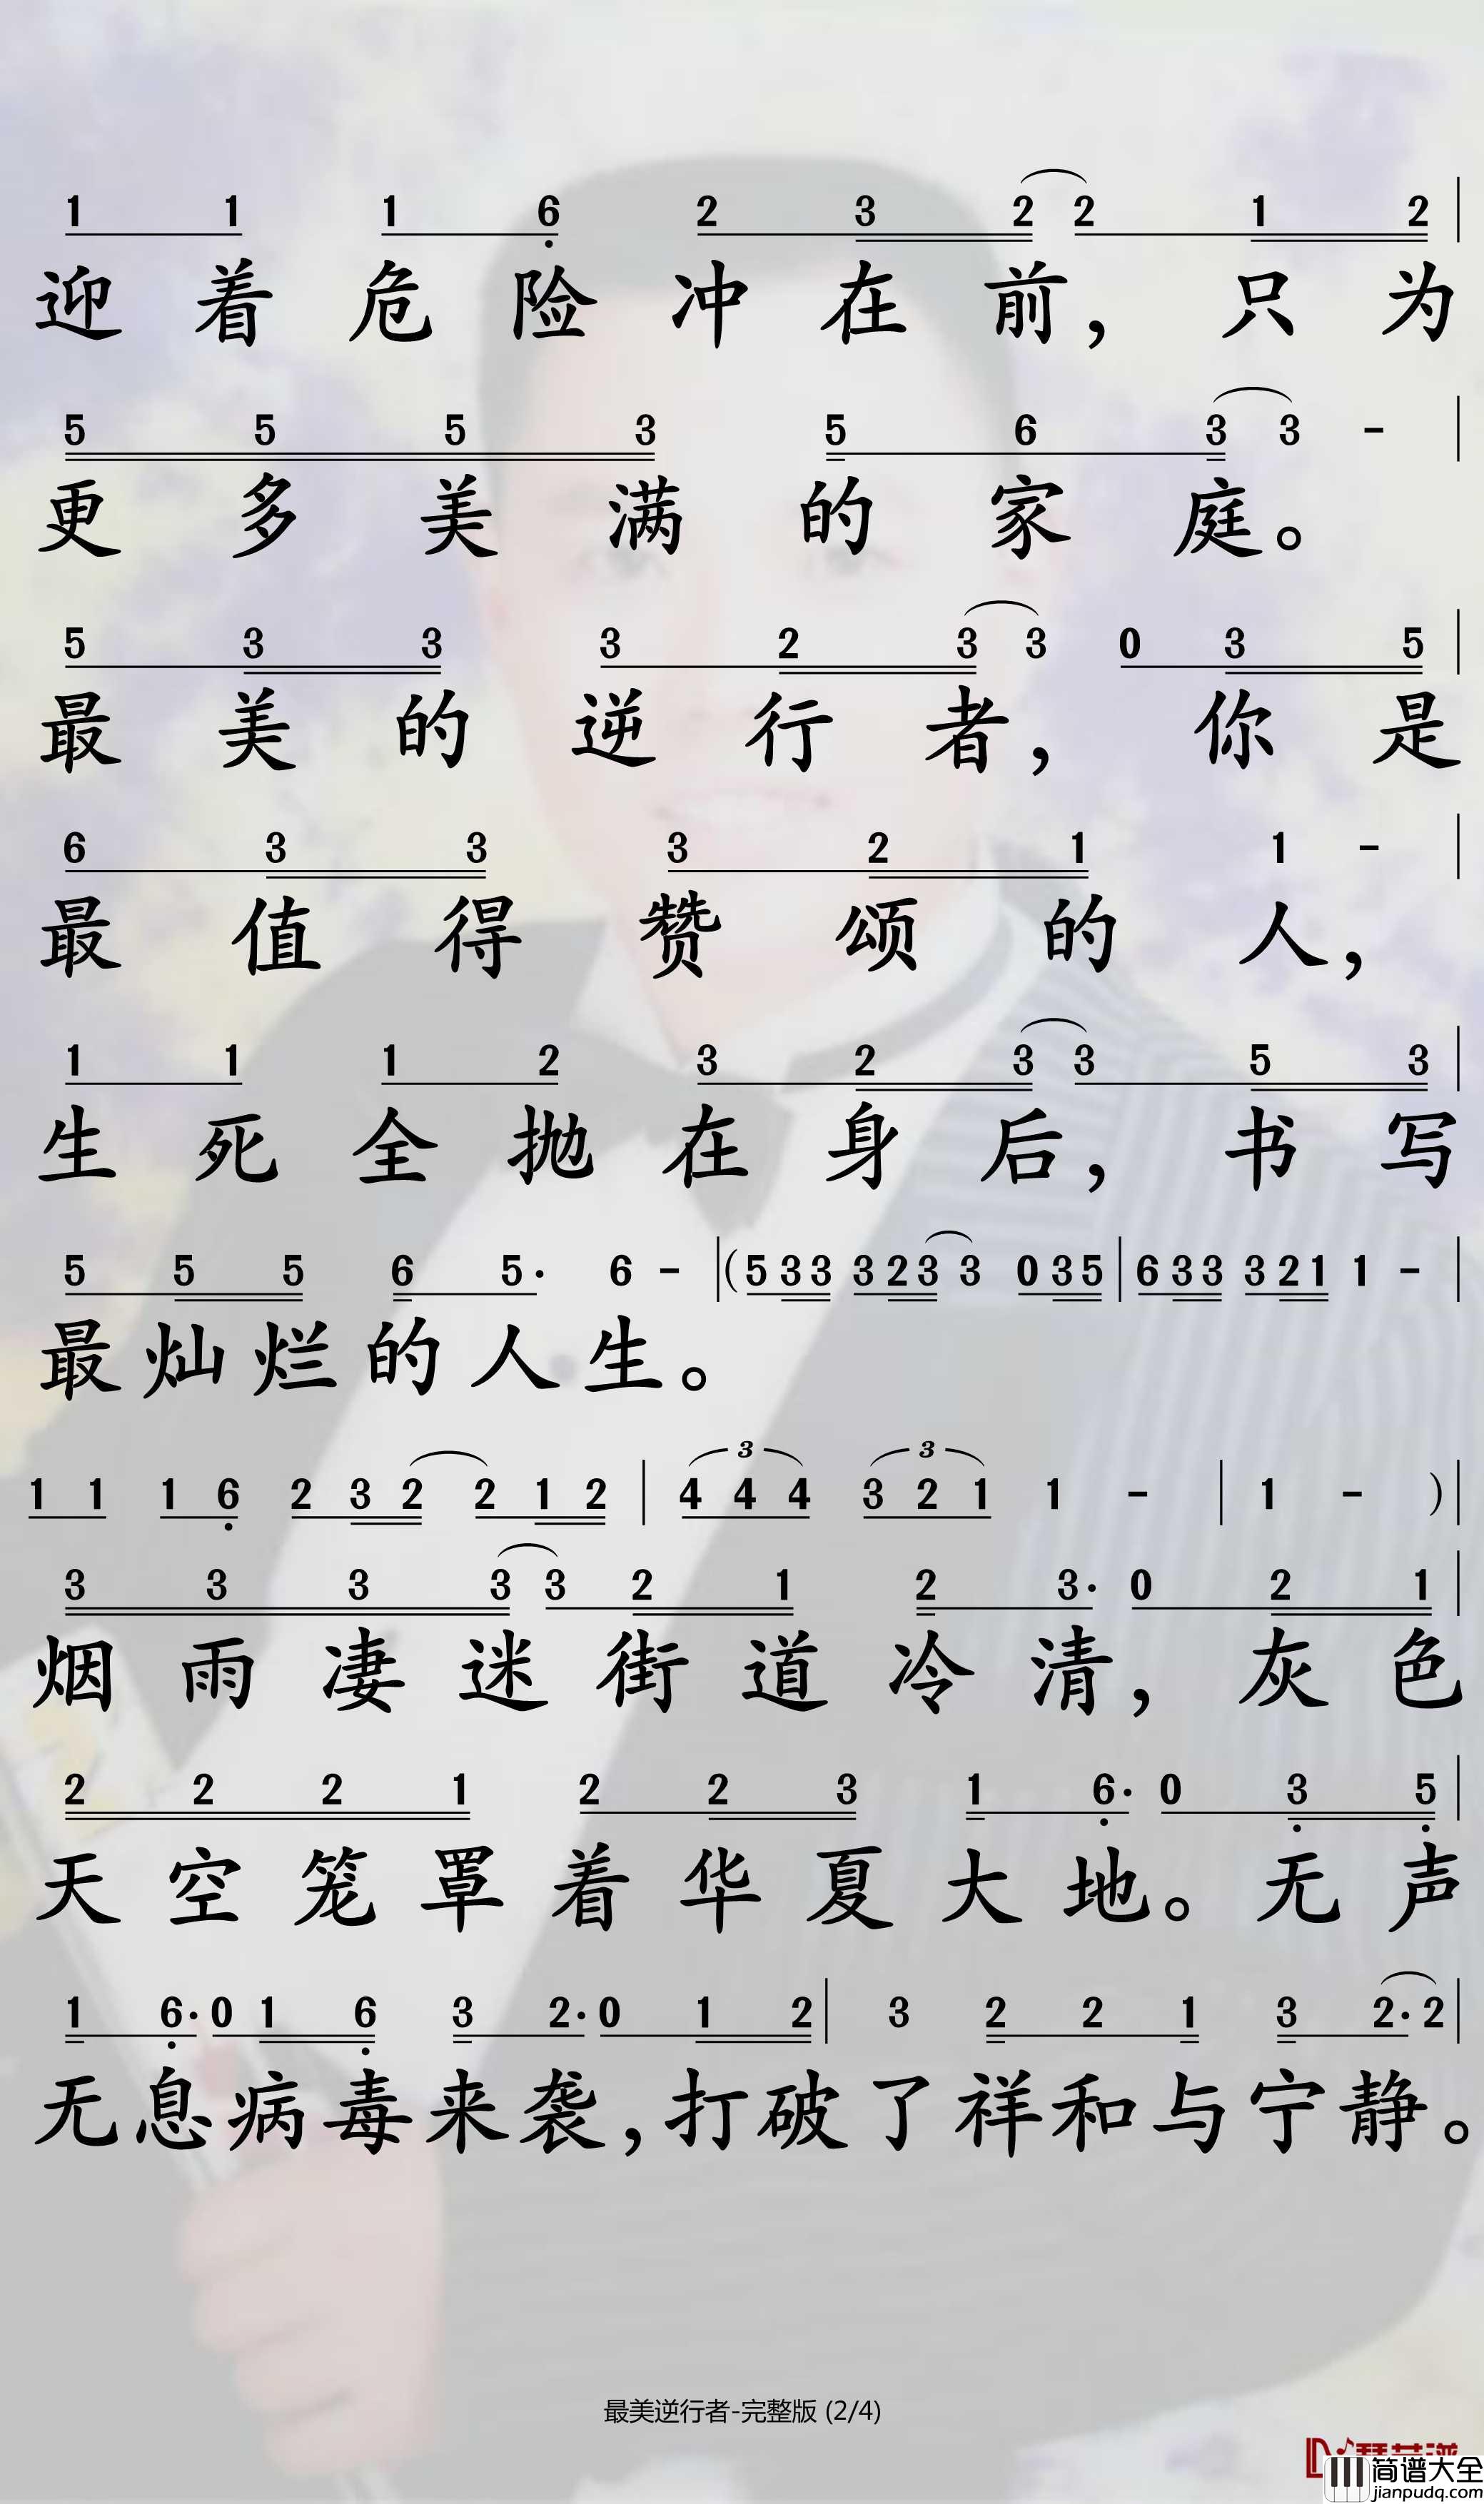 1 1 1 6 2 3 2 2 1 2
迎着危险冲在前，只为
5 5 5 3 5 6 3 3 -
更多美满的家庭。
5 3 3 3 2 3 3 0 3 5
最美的逆行者，你是
6 3 3 3 2 1 1 -
最值得赞颂的人，
1 1 1 2 3 2 3 3 5 3
生死全抛在身后，书写
5 5 5 6 5· 6 - | (5 3 3 3 2 3 3 0 3 5 | 6 3 3 3 2 1 1 - |
最灿烂的人生。
1 1 1 6 2 3 2 2 1 2 | 3 4 4 4 3 3 2 1 1 - | 1 - ) |
3 3 3 3 3 2 1 2 3· 0 2 1
烟雨凄迷街道冷清，灰色
2 2 2 1 2 2 3 1 6· 0 3 5
天空笼罩着华夏大地。无声
1 6· 0 1 6 3 2· 0 1 2 | 3 2 2 1 3 2· 2 |
无息病毒来袭，打破了祥和与宁静。
最美逆行者-完整版 (2/4)
简谱大全
jianpudq.com